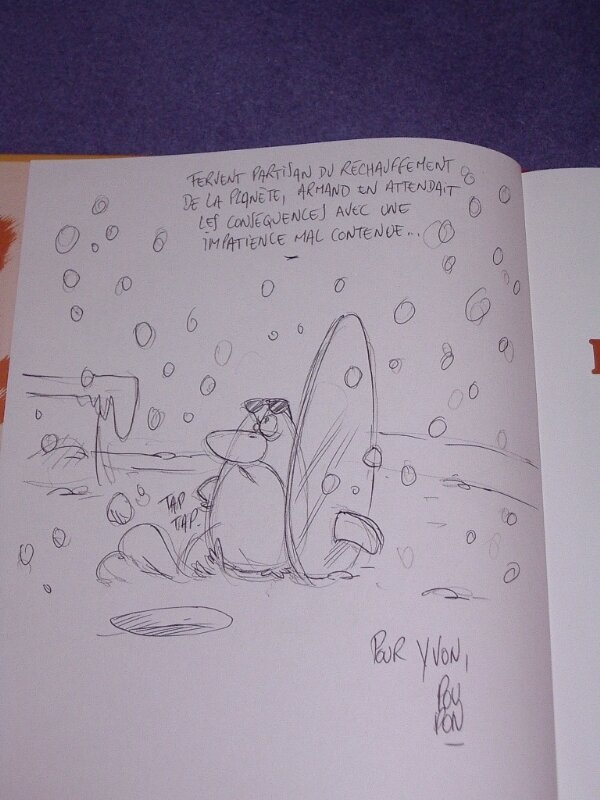 FERVENT PARTISAN DU RÉCHAUFFEMENT
DE LA PLANÈTE, ARMAND EN ATTENDAIT
LES CONSÉQUENCES AVEC UNE
IMPATIENCE MAL CONTENUE...
TAP
TAP.
POUR YVON,